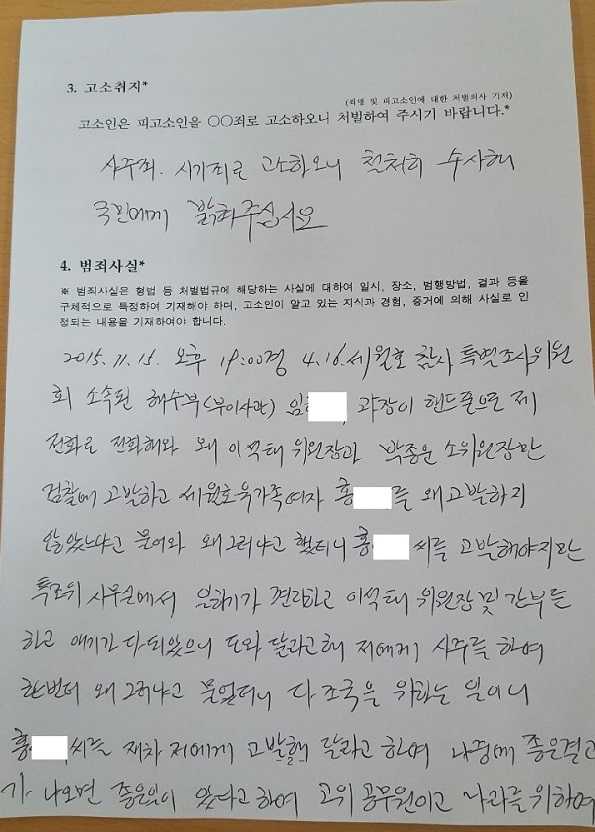 3. 고소취지*
(죄명 및 피고소인에 대한 처벌의사 기재)
고소인은 피고소인을 ○○죄로 고소하오니 처벌하여 주시기 바랍니다.*
사주죄. 사기죄로 고소하오니 철처히 수사해
국민에게 밝혀주십시요
4. 범죄사실*
※ 범죄사실은 형법 등 처벌법규에 해당하는 사실에 대하여 일시, 장소, 범행방법, 결과 등을
구체적으로 특정하여 기재해야 하며, 고소인이 알고 있는 지식과 경험, 증거에 의해 사실로 인
정되는 내용을 기재하여야 합니다.
2015.11.15. 오후 19:00경 4.16.세월호 참사 특별조사위원
회 소속된 해수부(부이사관) 임 과장이 핸드폰으로 제
전화로 전화해와 왜 이석태 위원장과 박종운 소위원장만
검찰에 고발하고 세월호유가족여자 홍 를 왜 고발하지
않았느냐고 물어와 왜 그러냐고 했더니 홍 씨를 고발해야지만
특조위 사무실에서 일하기가 편리하고 이석태 위원장 및 간부들
하고 얘기가 다 되었으니 도와 달라고해 저에게 사주를 하여
한번더 왜 그러냐고 물었더니 다 조국을 위하는 일이니
홍 씨를 재차 저에게 고발해 달라고 하여 나중에 좋은결과
가 나오면 좋은일이 있다고 하여 고위 공무원이고 나라를 위하여